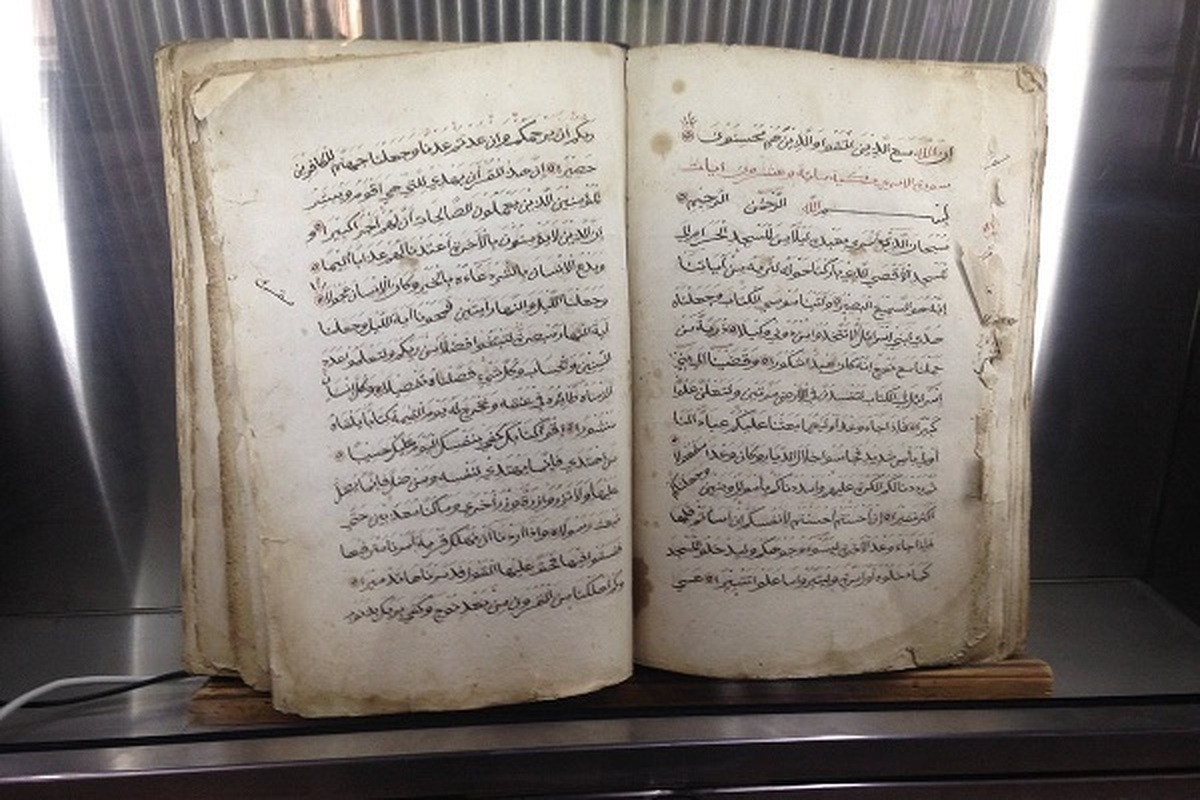 ان الله مع الذين اتقوا والذين هم محسنون
سورة الاسرى مكية مائة وعشر ايات
بسم الله الرحمن الرحيم
سبحان الذي اسرى بعبده ليلا من المسجد الحرام الى
المسجد الاقصى الذي باركنا حوله لنريه من آياتنا
انه هو السميع البصير واتينا موسى الكتاب وجعلناه
هدى لبني اسرائل الا تتخذوا من دوني وكيلا ذرية من
حملنا مع نوح انه كان عبدا شكورا وقضينا الى بني
اسرائل في الكتاب لتفسدن في الارض مرتين ولتعلن علوا
كبيرا فاذا جاء وعد اوليهما بعثنا عليكم عبادا لنا
اولي بأس شديد فجاسوا خلال الديار وكان وعدا مفعولا
ثم رددنا لكم الكرة عليهم وامددناكم بأموال وبنين وجعلناكم
اكثر نفيرا ان احسنتم احسنتم لانفسكم وان اسأتم فلها
فاذا جاء وعد الاخرة ليسوءوا وجوهكم وليدخلوا المسجد
كما دخلوه اول مرة وليتبروا ما علوا تتبيرا عسى
ربكم ان يرحمكم وان عدتم عدنا وجعلنا جهنم للكافرين
حصيرا ان هذا القرآن يهدي للتي هي اقوم ويبشر
المؤمنين الذين يعملون الصالحات ان لهم اجرا كبيرا و
ان الذين لا يؤمنون بالآخرة اعتدنا لهم عذابا اليما
ويدع الانسان بالشر دعاءه بالخير وكان الانسان عجولا
وجعلنا الليل والنهار ايتين فمحونا آية الليل وجعلنا
آية النهار مبصرة لتبتغوا فضلا من ربكم ولتعلموا عدد
السنين والحساب وكل شيء فصلناه تفصيلا وكل انسان
الزمناه طائره في عنقه ونخرج له يوم القيمة كتابا يلقاه
منشورا اقرأ كتابك كفى بنفسك اليوم عليك حسيبا
من اهتدى فانما يهتدي لنفسه ومن ضل فانما يضل
عليها ولا تزر وازرة وزر أخرى وما كنا معذبين حتى
نبعث رسولا واذا اردنا ان نهلك قرية امرنا مترفيها
ففسقوا فيها فحق عليها القول فدمرناها تدميرا
وكم اهلكنا من القرون من بعد نوح وكفى بربك بذنوب